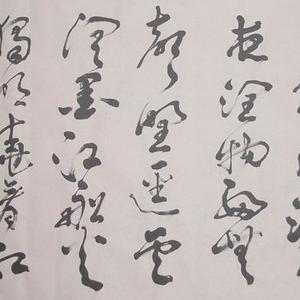 夜潤物細無
聲野徑雲
俱黑江船火
獨明曉看紅